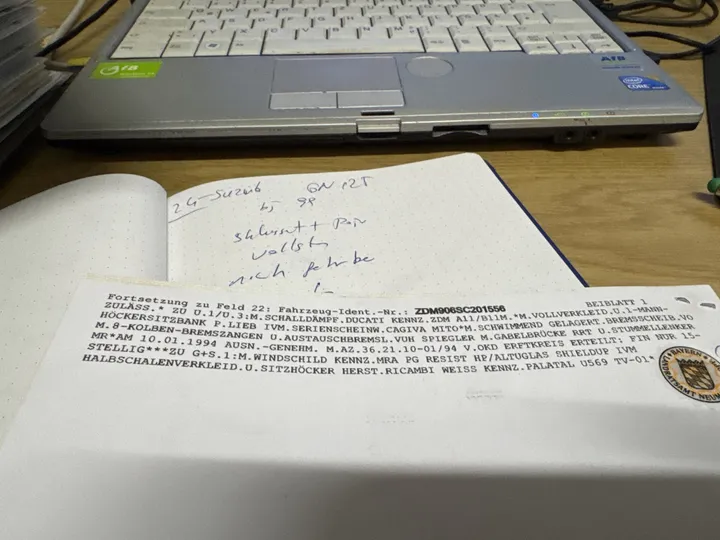 AfB
AfB
intel
CORE
24-Suzuki GN 125
bj 99
+
vollst
Fortsetzung zu Feld 22: Fahrzeug-Ident.-Nr.: ZDM906SC201556 BEIBLATT 1
ZULÄSS.* ZU U.1/U.3:M.SCHALLDÄMPF.DUCATI KENNZ.ZDM A11/B11M.*M.VOLLVERKLEID.U.1-MANN-
HÖCKERSITZBANK P.LIEB IVM.SERIENSCHEINW.CAGIVA MITO*M.SCHWIMMEND GELAGERT.BREMSSCHEIB.VO
M.8-KOLBEN-BREMSZANGEN U.AUSTAUSCHBREMSL.VUH SPIEGLER M.GABELBRÜCKE RRT U.STUMMELLENKER
MR*AM 10.01.1994 AUSN.-GENEHM. M.AZ.36.21.10-01/94 V.OKD ERFTKREIS ERTEILT: FIN NUR 15-
STELLIG***ZU G+S.1:M.WINDSCHILD KENNZ.MRA PG RESIST HP/ALTUGLAS SHIELDUP IVM
HALBSCHALENVERKLEID.U.SITZHÖCKER HERST.RICAMBI WEISS KENNZ.PALATAL U569 TV-01*
BAYERN